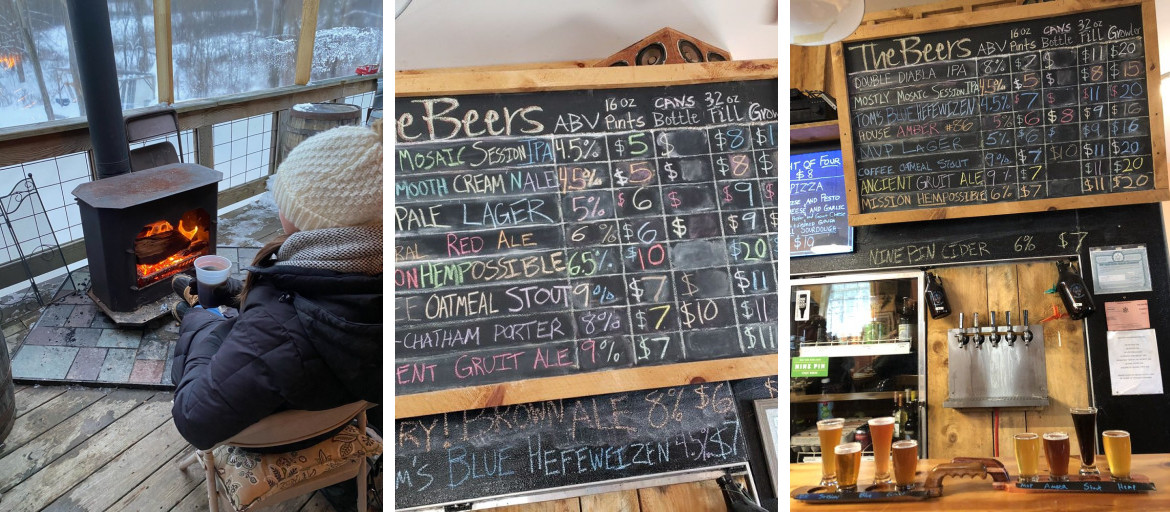 eBeers ABV 16 oz Pints CANS Bottle 32 oz Fill Grow
MOSAIC SESSION IPA 4.5% $5 $ $8 $1
MOOTH CREAM N ALE 4.5% $5 $ $8
PALE LAGER 5% $6 $ $9 $
BAL RED ALE 6% $6 $ $9 $
ON HEMPOSSIBLE 6.5% $10 $20
E OATMEAL STOUT 9% $7 $ $11
-CHATHAM PORTER 8% $7 $10 $11
ENT GRUIT ALE 9% $7 $11
RY! BROWN ALE 8% $6
M'S BLUE HEFEWEIZEN 4.5% $7
The Beers ABV 16oz Pints CANS Bottle 32 oz Fill Growler
DOUBLE DIABLA IPA 8% $7 $11 $20
MOSTLY MOSAIC SESSION IPA 4.5% $5 $8 $15
TOM'S BLUE HEFEWEIZEN 4.5% $7 $11 $20
HOUSE AMBER #86 5% $6 $8 $9 $16
LAGER 5% $6 $9 $16
COFFEE OATMEAL STOUT 9% $7 $10 $11 $20
ANCIENT GRUIT ALE 9% $7 $11 $20
MISSION HEMPOSSIBLE 6% $7 $11 $20
NT OF FOUR
$8
PIZZA
AND PESTO
AND GARLIC
SOURDOUGH
$10
NINE PIN CIDER 6% $7
NINE PIN
AMBER STOUT HEMP